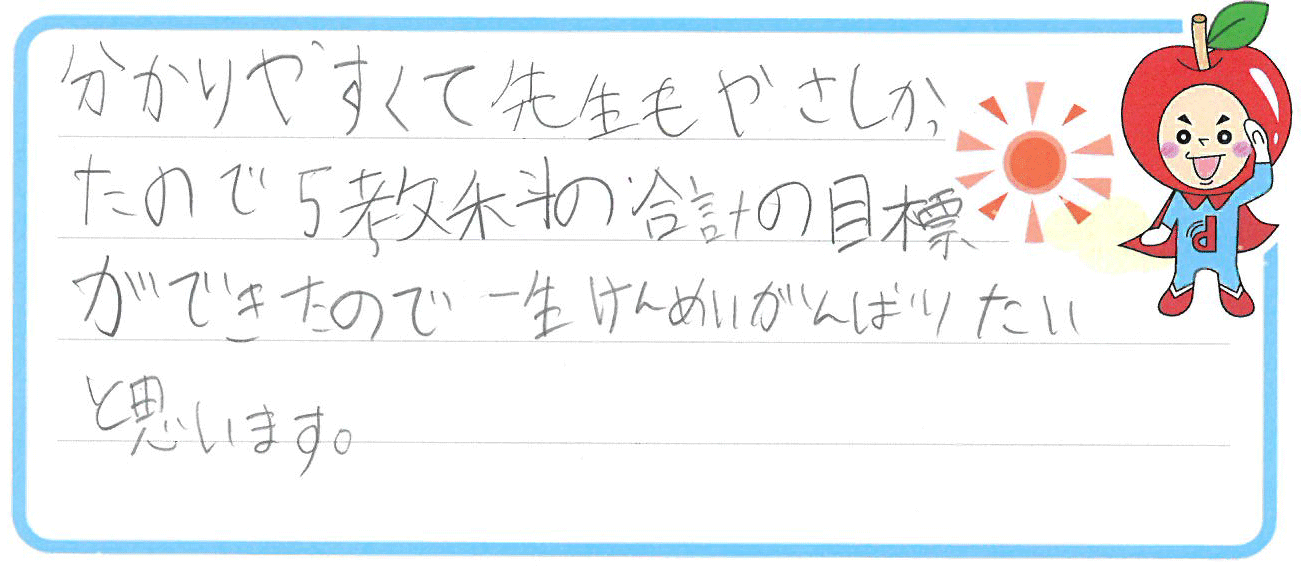 分かりやすくて先生もやさしかっ
たので5教科の合計の目標
ができたので一生けんめいがんばりたい
と思います。